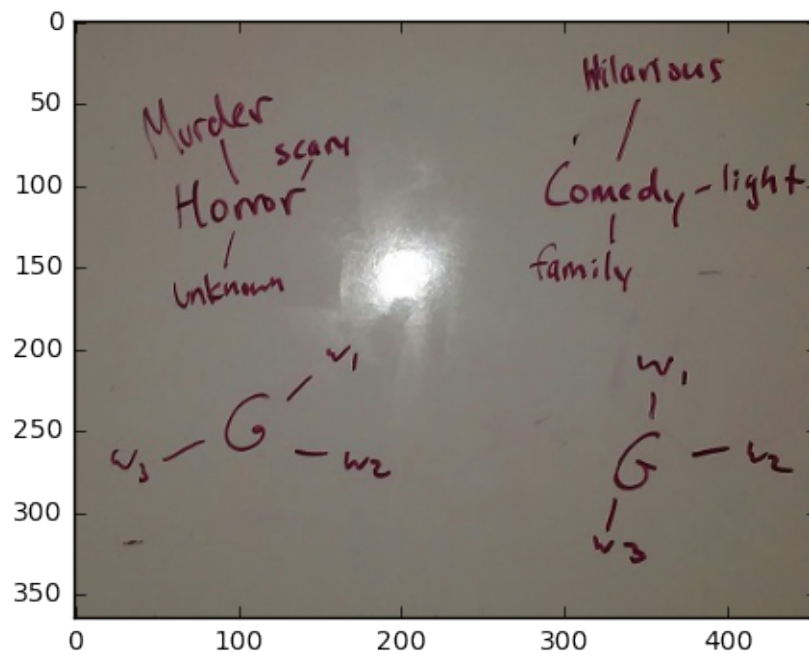 0
50
100
150
200
250
300
350
0 100 200 300 400
Murder
scary
Horror
unknown
Hilarious
Comedy light
family
w1
G
w3 w2
w1
G w2
w3